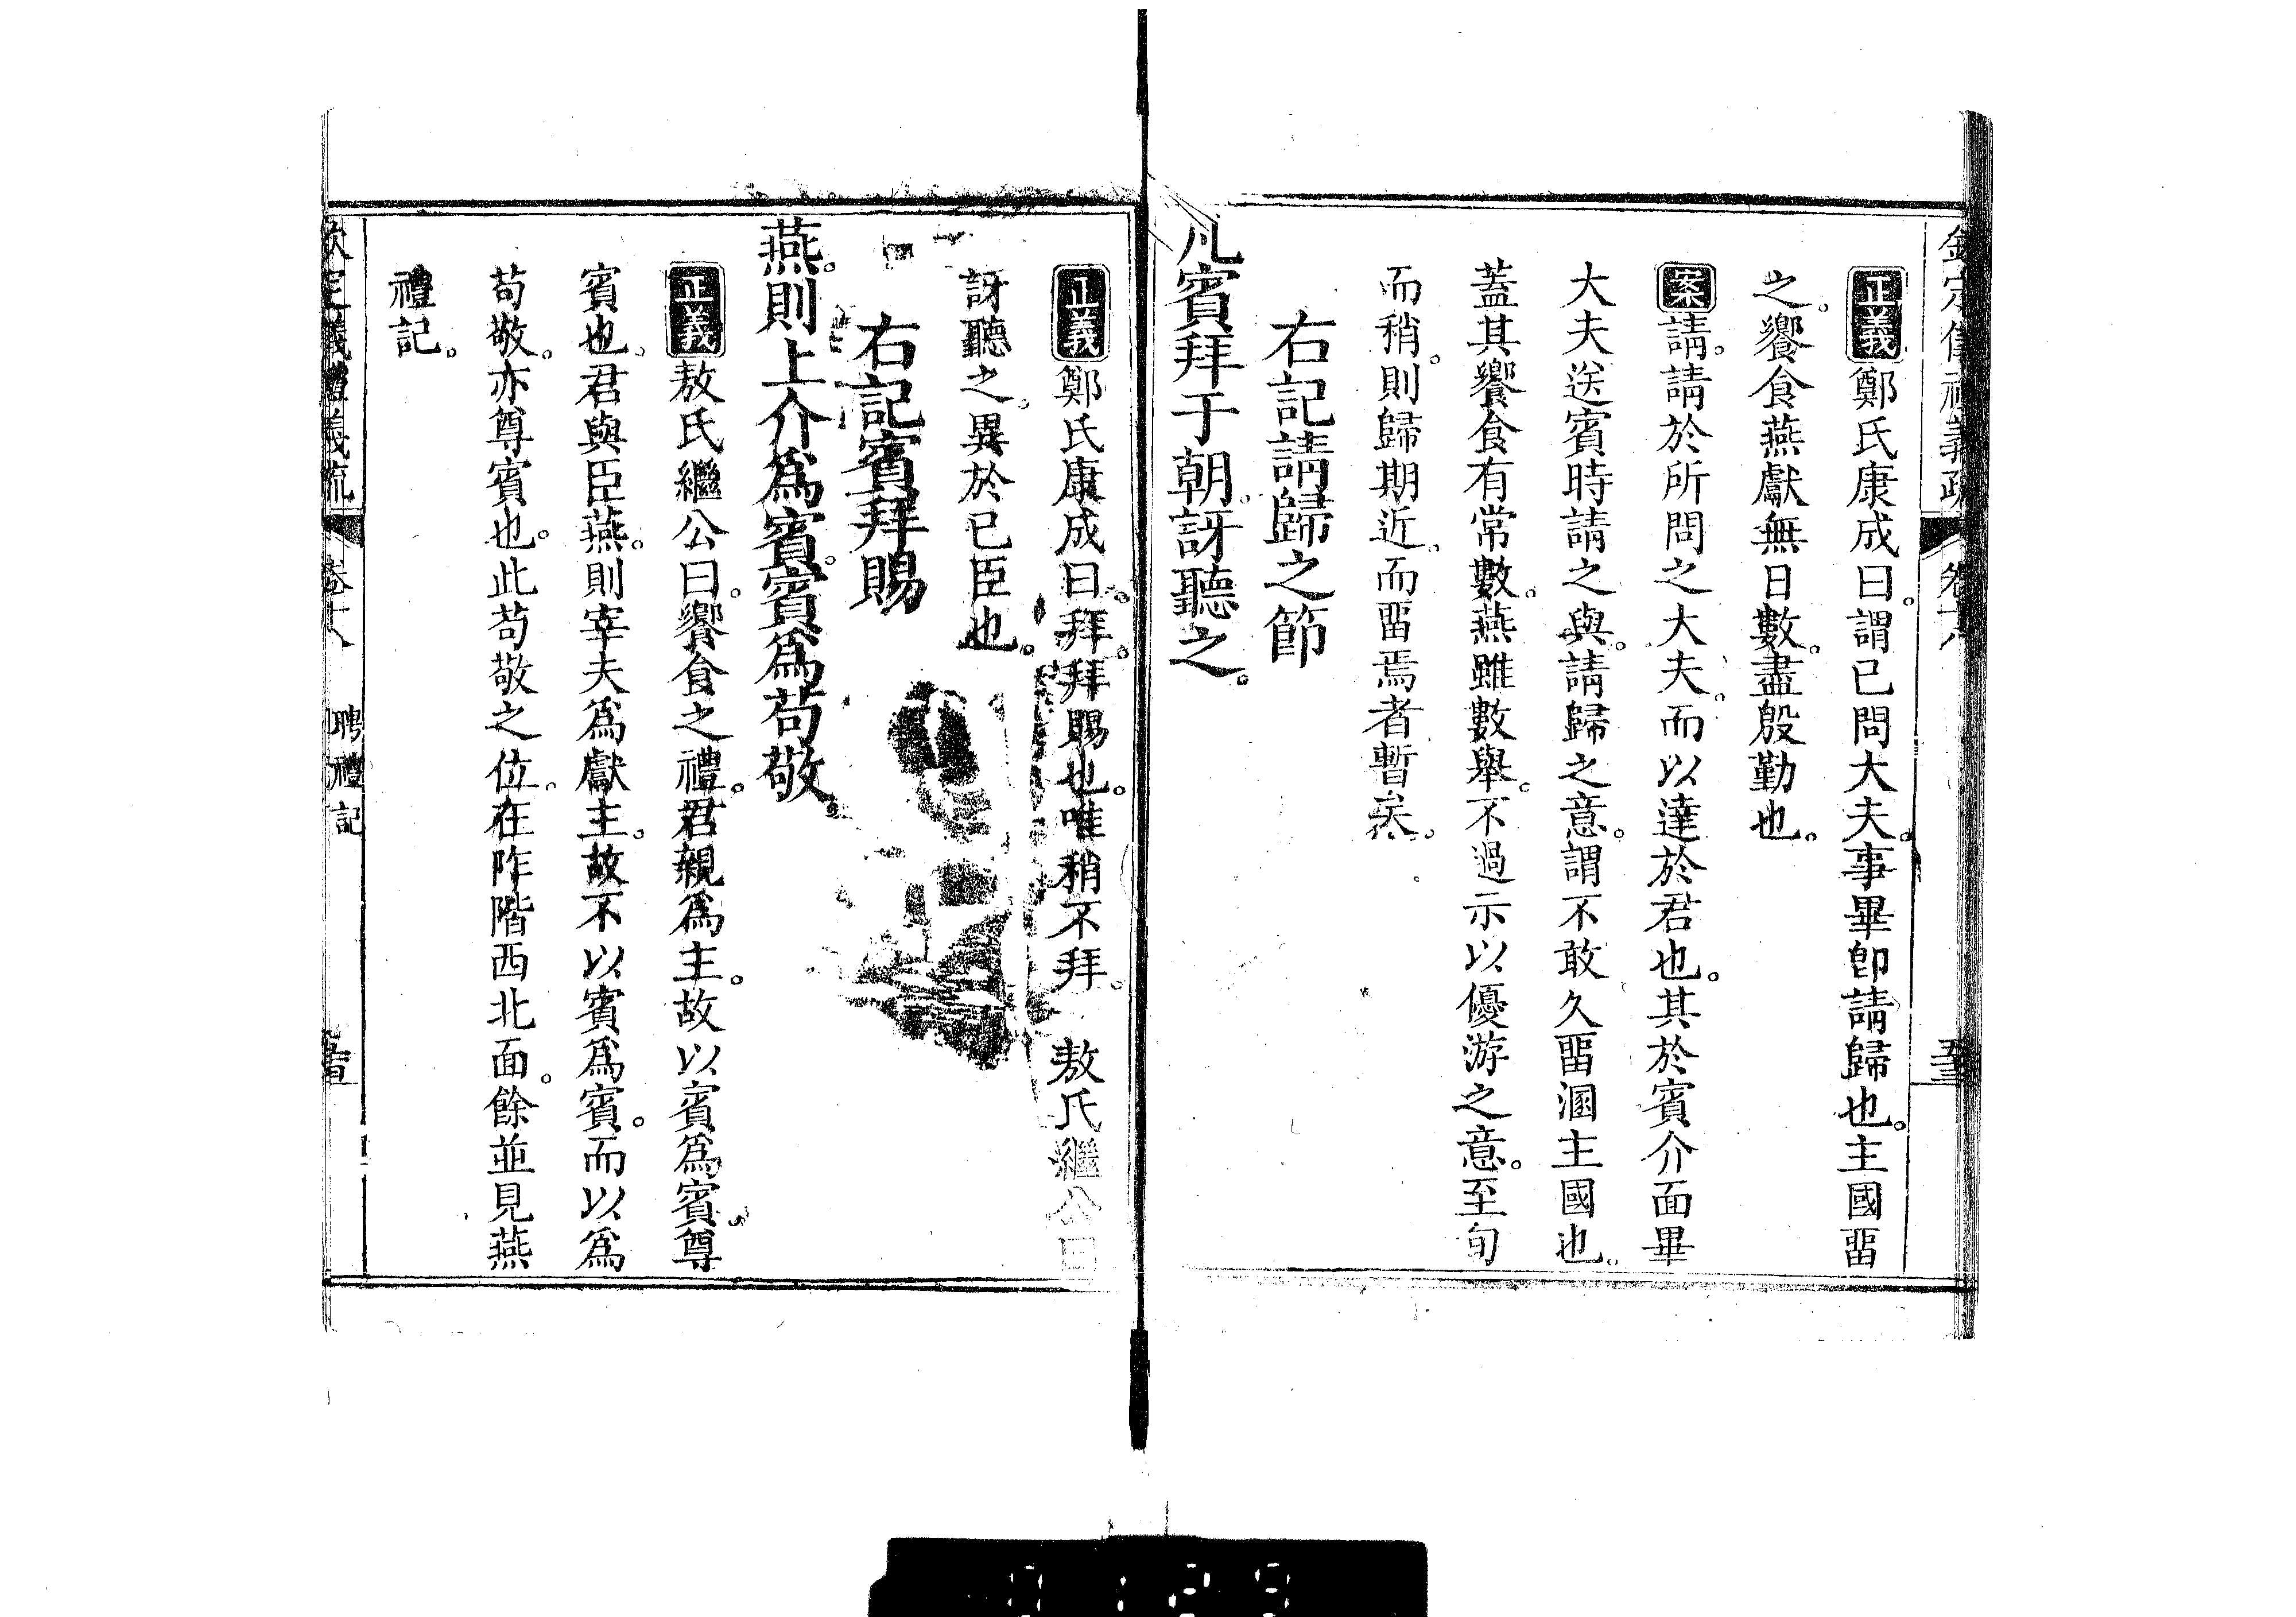 欽定儀禮義疏 卷十八
正義鄭氏康成曰。謂已問大夫。事畢卽請歸也。主國畱
之。饗食燕獻無日數。盡殷勤也。
案請。請於所問之大夫。而以達於君也。其於賓介面畢
大夫送賓時請之與。請歸之意。謂不敢久畱溷主國也。
蓋其饗食有常數。燕雖數舉。不過示以優游之意。至旬
而稍。則歸期近。而畱焉者暫矣。
右記請歸之節
凡賓拜于朝。訝聽之。
正義鄭氏康成曰。拜。拜賜也。唯稍不拜。 敖氏繼公曰
訝聽之。異於已臣也。
右記賓拜賜
燕。則上介爲賓。賓爲苟敬。
正義敖氏繼公曰。饗食之禮。君親爲主。故以賓爲賓。尊
賓也。君與臣燕。則宰夫爲獻主。故不以賓爲賓。而以爲
苟敬。亦尊賓也。此苟敬之位。在阼階西北面。餘並見燕
禮記。
欽定儀禮義疏 卷十八 聘禮記